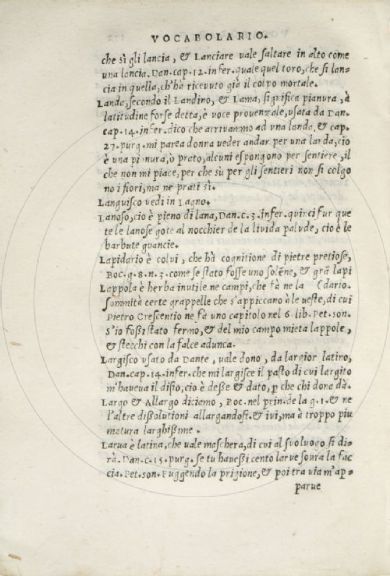 VOCABOLARIO.
che sì gli lancia, & Lanciare uale saltare in alto come
una lancia. Dan. cap. 12. infer. quale quel toro, che si lan‑
cia in quella, ch'hà riceuuto già il colpo mortale.
Landa, secondo il Landino, & Lama, significa pianura, à
latitudine forse detta, è uoce prouenzale, usata da Dan.
cap. 14. infer. dico che arriuammo ad una landa, & cap.
27. purg. mi parea donna ueder andar per una landa, cio
è una pianura, ò prato, alcuni espongono per sentiere, il
che non mi piace, per che sù per gli sentieri non si colgo
no i fiori, ma ne prati sì.
Languisco uedi in Lagno.
Lanoso, cio è pieno di lana, Dan. c. 3. infer. quinci fur que
te le lanose gote al nocchier de la liuida palude, cio è le
barbute guancie.
Lapidario è colui, che hà cognitione di pietre pretiose,
Boc. g. 8. n. 3. come se stato fosse uno solẽne, & grã lapi
Lappola è herba inutile ne campi, che fà ne la (dario.
sommità certe grappelle che s'appiccano à le ueste, di cui
Pietro Crescentio ne fà uno capitolo nel 6 lib. Pet. son.
s'io foßi stato fermo, & del mio campo mieta lappole,
& stecchi con la falce adunca.
Largisco usato da Dante, uale dono, da largior latino,
Dan. cap. 14. infer. che mi largisce il pasto di cui largito
m'haueua il disio, cio è deße & dato, ꝑ che chi dona dà.
Largo & Allargo diciamo, Boc. nel prin. de la g. 1. & ne
l'altre dißolutioni allargandosi. & iui, ma è troppo piu
matura larghißime.
Larua è latina, che uale maschera, di cui al suo luoco si di‑
rà. Dan. c. 15. purg. se tu haueßi cento larue soura la fac
cia. Pet. son. Fuggendo la prigione, & poi tra uia m'ap‑
parue